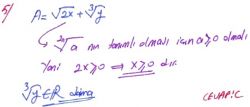 5/ A = √2x + ∛y
²ⁿ√a nın tanımlı olması için a≥0 olmalı
Yani 2x≥0 ⇒ x≥0 dır.
∛y ∈ ℝ daima
CEVAP: C